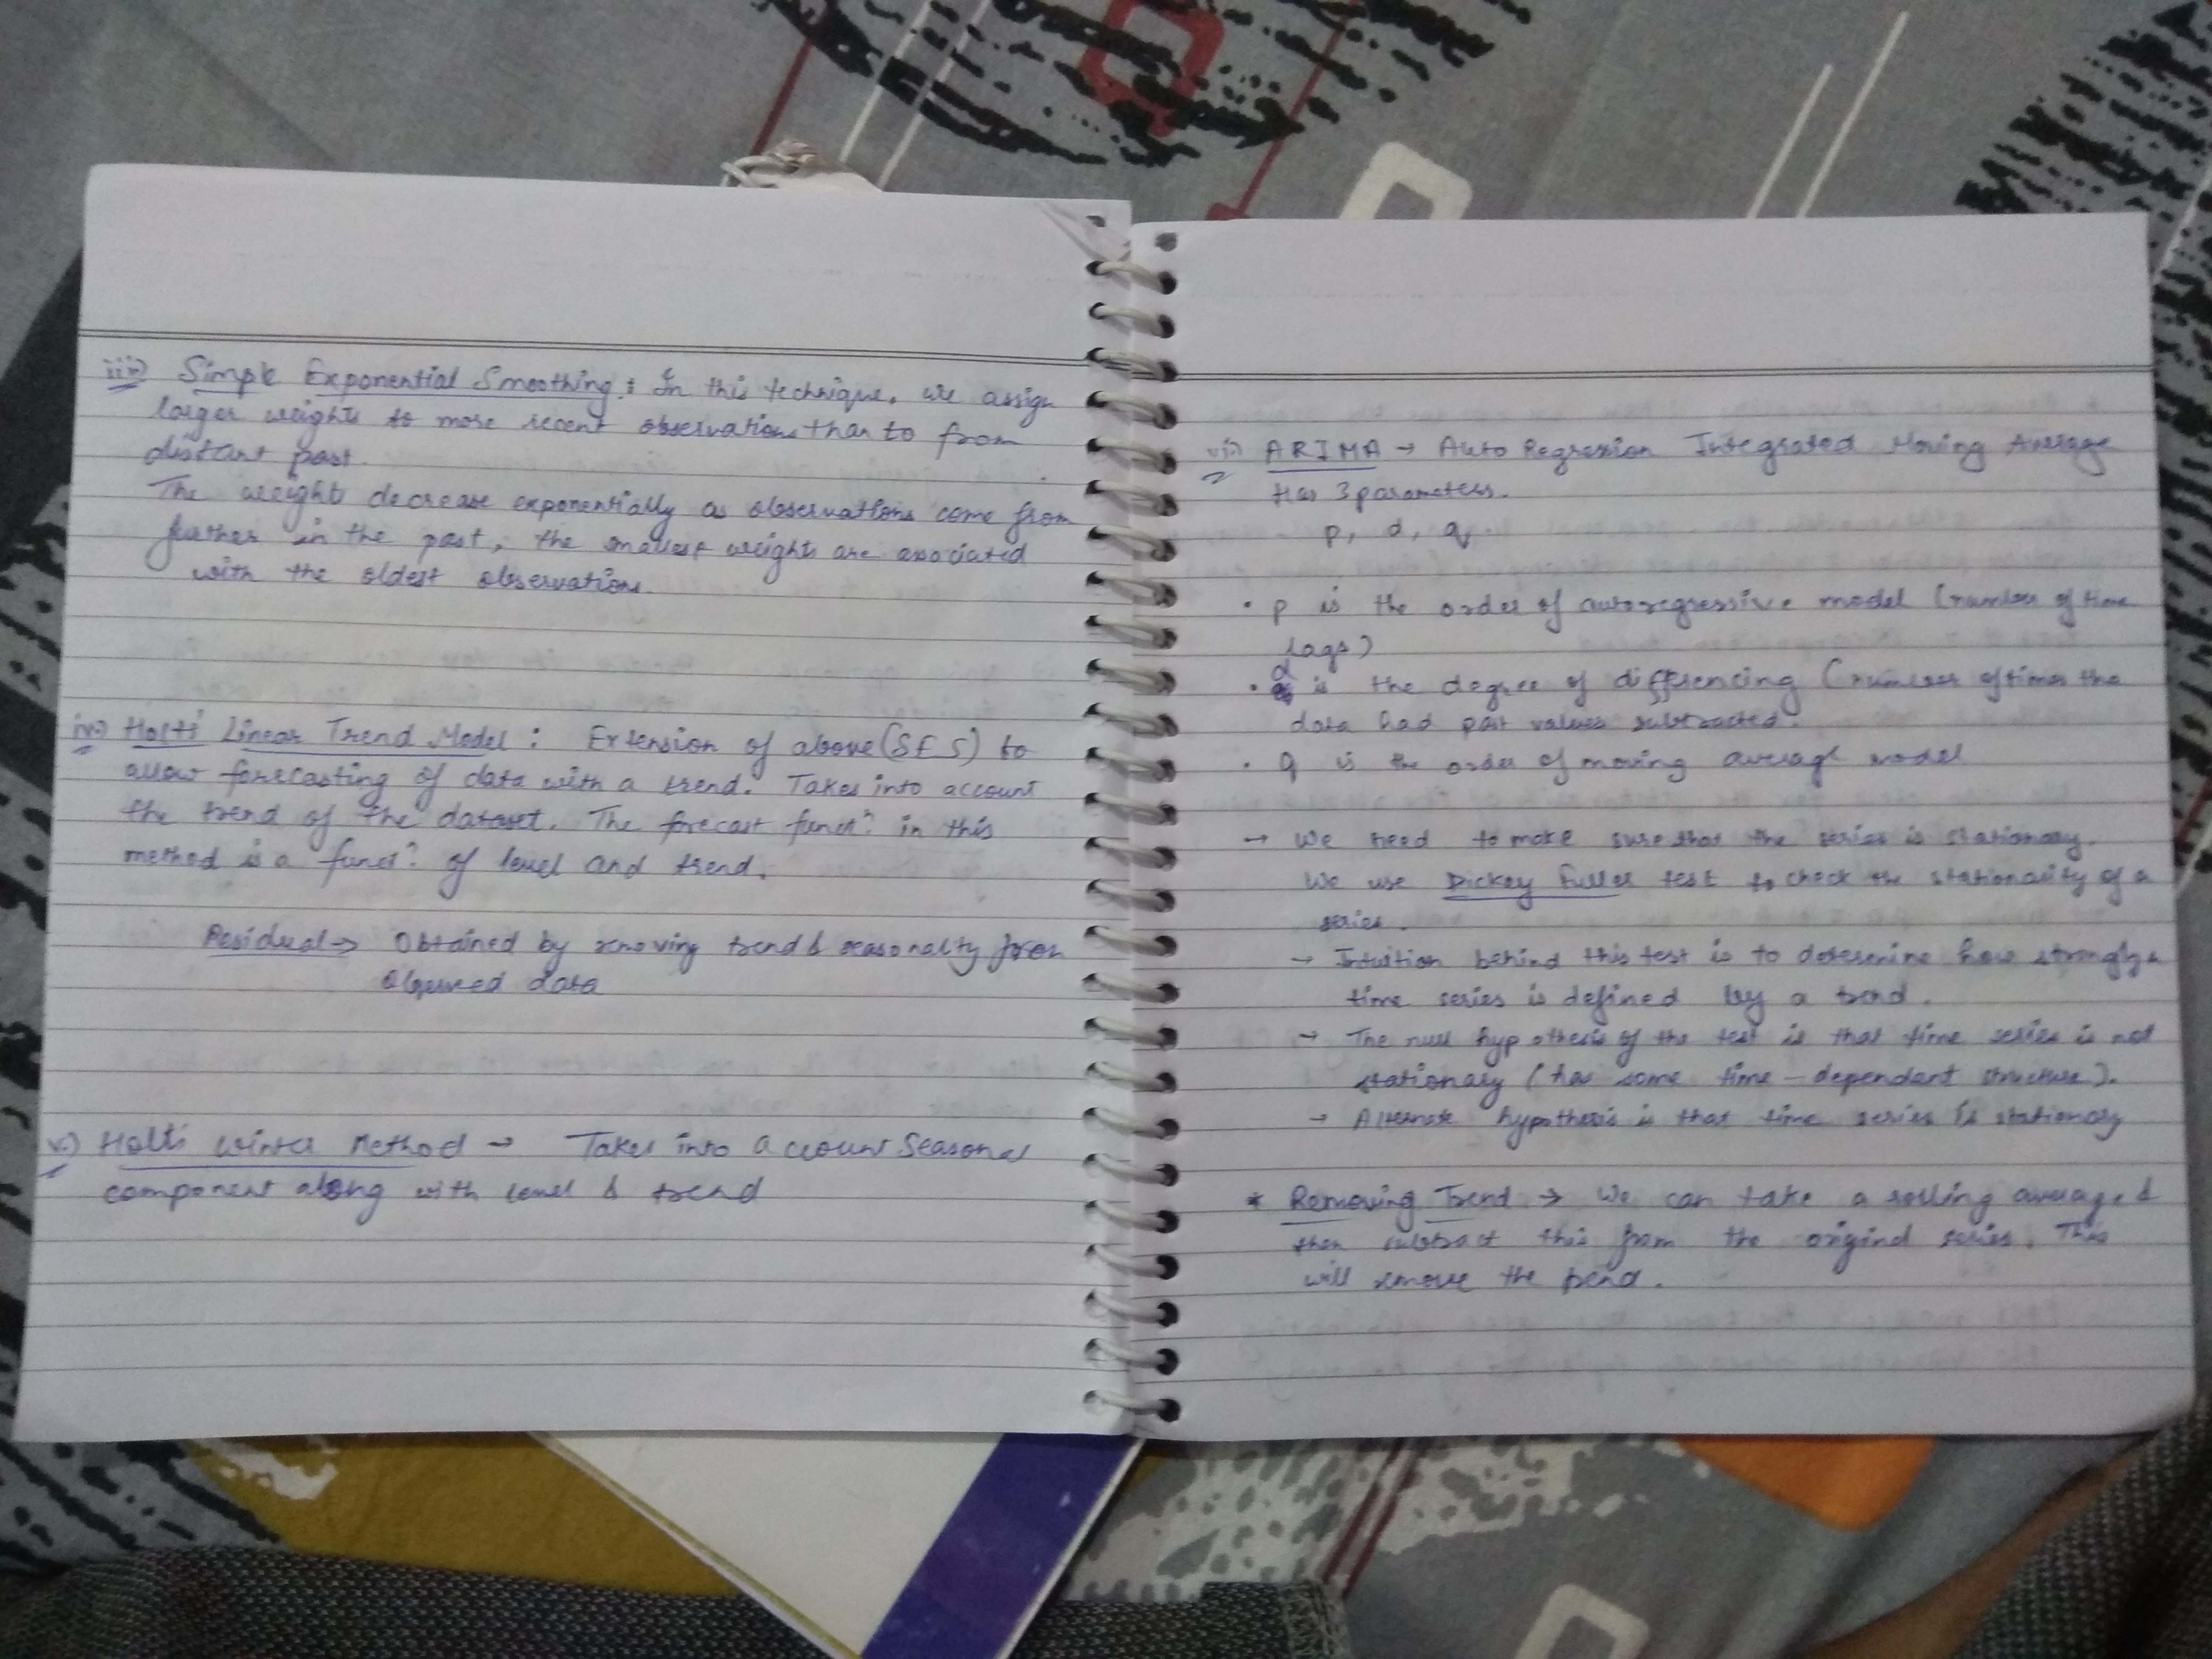 iii) Simple Exponential Smoothing : In this technique, we assign
larger weights to more recent observations than to from
distant past.
The weights decrease exponentially as observations come from
further in the past, the smallest weights are associated
with the oldest observations.
iv) Holt's Linear Trend Model : Extension of above (SES) to
allow forecasting of data with a trend. Takes into account
the trend of the dataset. The forecast funcⁿ in this
method is a funcⁿ of level and trend.
Residual → Obtained by removing trend & seasonality from
observed data
v.) Holt's Winter Method → Takes into account Seasonal
component along with level & trend
vi) ARIMA → Auto Regression Integrated Moving Average
Has 3 parameters.
p, d, q
• p is the order of autoregressive model (number of time
lags)
• d is the degree of differencing (number of times the
data had past values subtracted.
• q is the order of moving average model
→ We need to make sure that the series is stationary.
We use Dickey Fuller test to check the stationarity of a
series.
→ Intuition behind this test is to determine how strongly a
time series is defined by a trend.
→ The null hypothesis of the test is that time series is not
stationary (has some time-dependant structure).
→ Alternate hypothesis is that time series is stationary
* Removing Trend → We can take a rolling average &
then subtract this from the original series. This
will remove the trend.